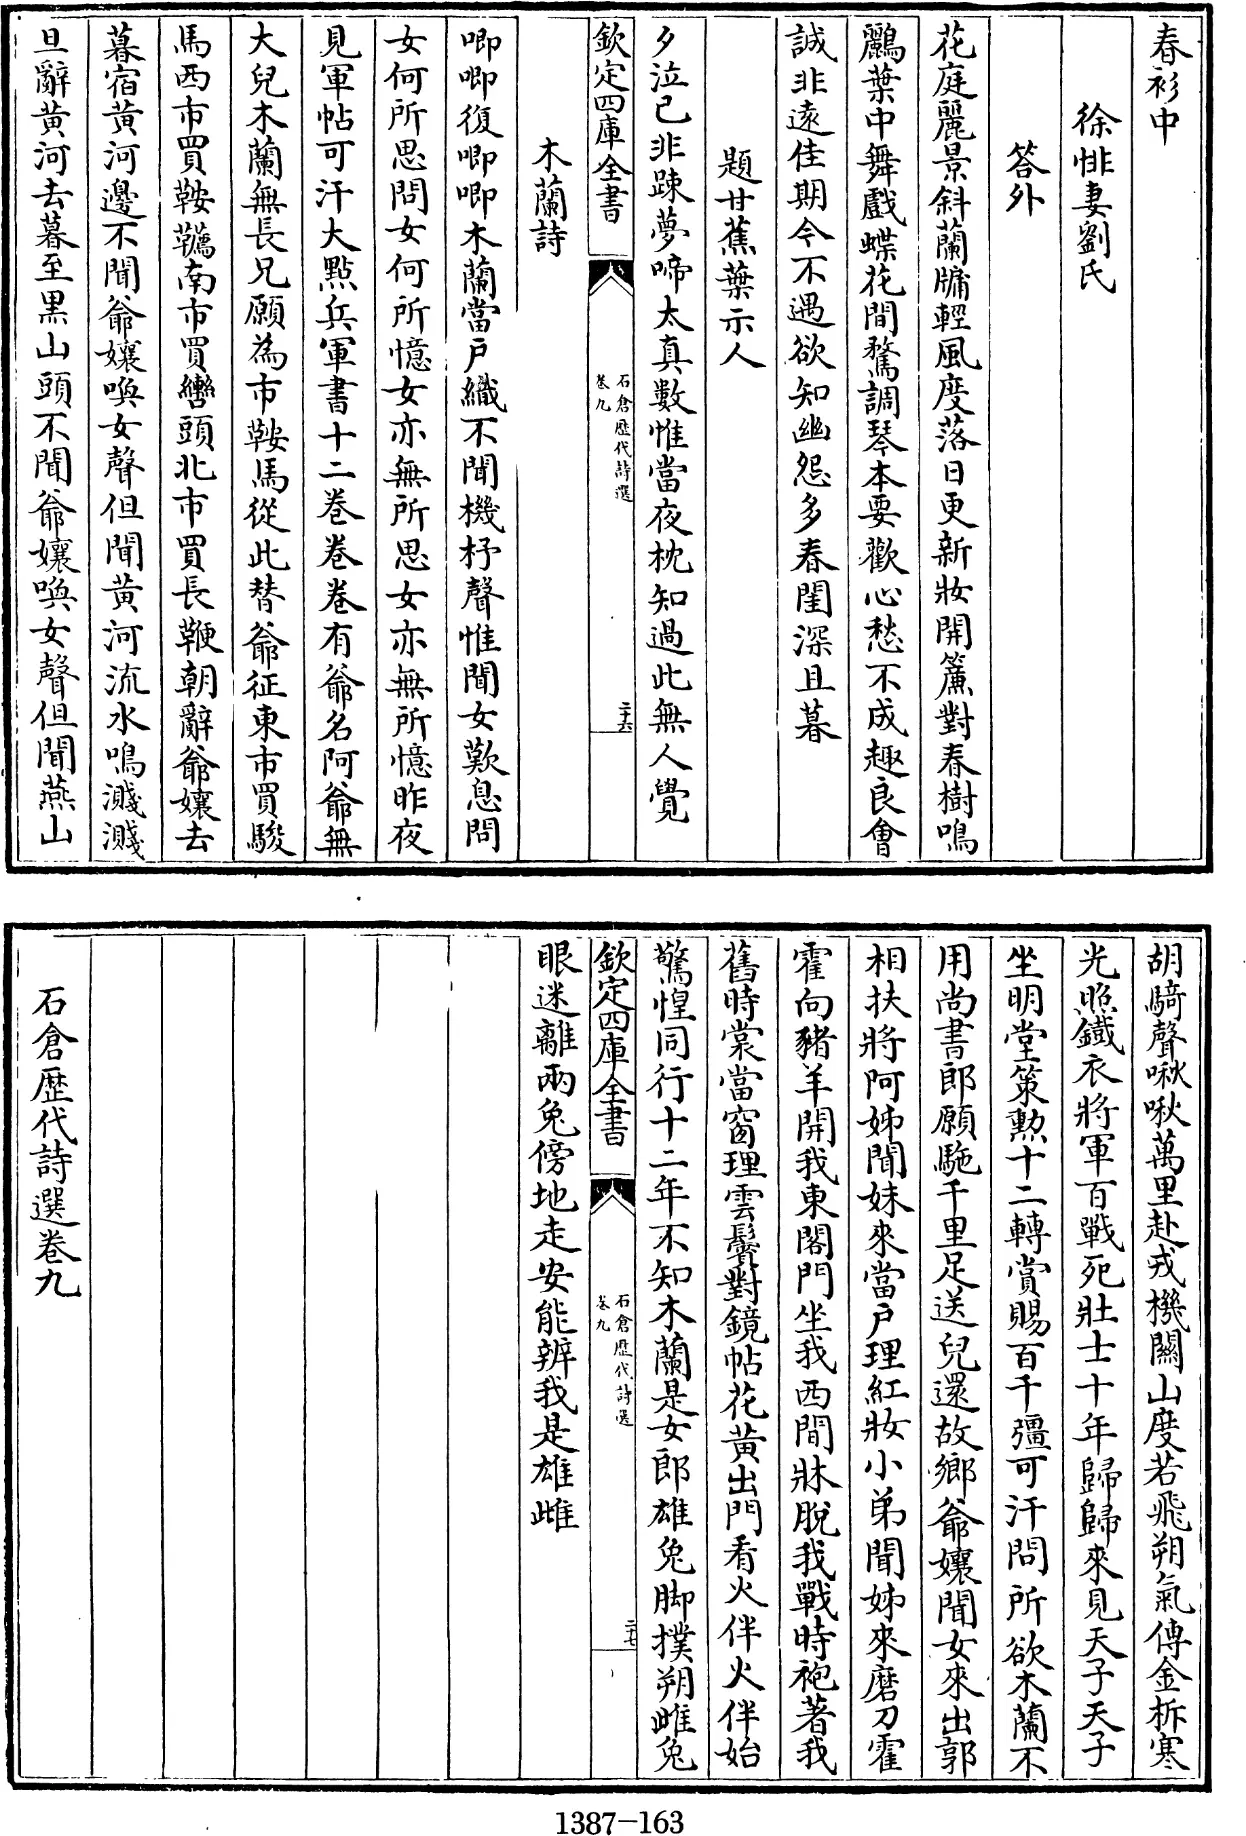 春衫中
徐悱妻劉氏
答外
花庭麗景斜蘭牗輕風度落日更新妝開簾對春樹鳴
鸝葉中舞戲蝶花間騖調琴本要歡心愁不成趣良會
誠非遠佳期今不遇欲知幽怨多春閨深且暮
題甘蕉葉示人
夕泣已非踈夢啼太真數惟當夜枕知過此無人覺
欽定四庫全書
石倉歴代詩選
卷九
二十六
木蘭詩
唧唧復唧唧木蘭當戸織不聞機杼聲惟聞女歎息問
女何所思問女何所憶女亦無所思女亦無所憶昨夜
見軍帖可汗大點兵軍書十二卷卷卷有爺名阿爺無
大兒木蘭無長兄願為市鞍馬從此替爺征東市買駿
馬西市買鞍韉南市買轡頭北市買長鞭朝辭爺孃去
暮宿黄河邊不聞爺孃喚女聲但聞黄河流水鳴濺濺
旦辭黄河去暮至黒山頭不聞爺孃喚女聲但聞燕山
胡騎聲啾啾萬里赴戎機關山度若飛朔氣傳金柝寒
光照鐵衣將軍百戰死壯士十年歸歸來見天子天子
坐明堂策勲十二轉賞賜百千彊可汗問所欲木蘭不
用尚書郎願馳千里足送兒還故鄉爺孃聞女來出郭
相扶將阿姊聞妹來當戸理紅妝小弟聞姊來磨刀霍
霍向豬羊開我東閣門坐我西間牀脫我戰時袍著我
舊時裳當窗理雲鬢對鏡帖花黄出門看火伴火伴始
驚惶同行十二年不知木蘭是女郎雄兔脚撲朔雌兔
欽定四庫全書
石倉歴代詩選
卷九
二十七
眼迷離兩兔傍地走安能辨我是雄雌
石倉歴代詩選卷九
1387-163